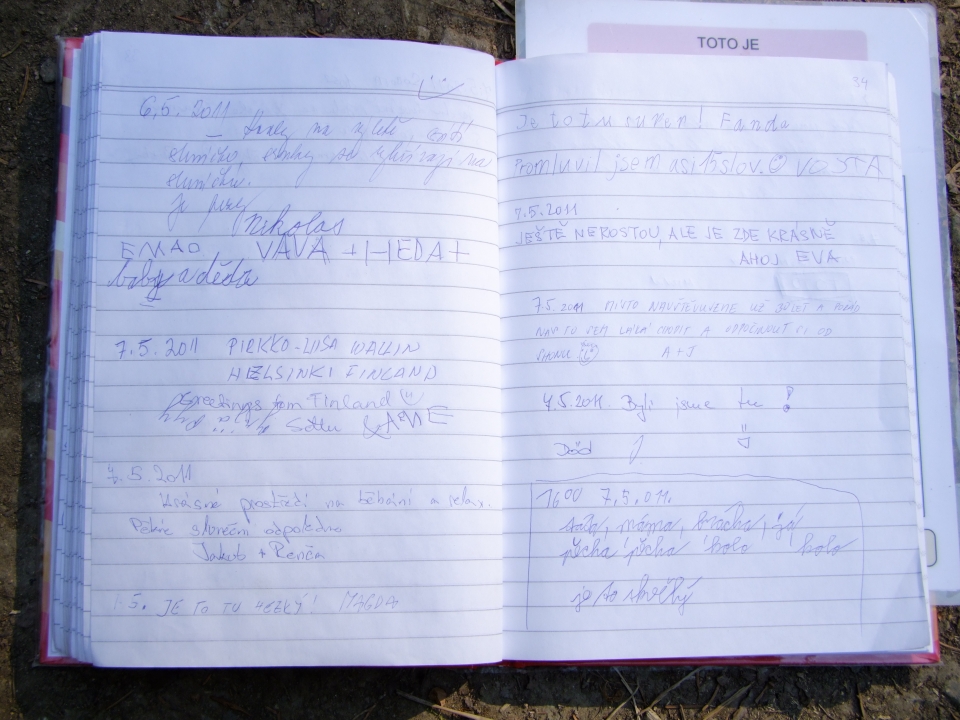 TOTO JE
6,5. 2011
sluníčko,
sluníčku.
Je
Nikolas
EMAO VÁVA + HEDA +
baby a děda
7.5.2011 PIRKKO-LIISA WALLIN
HELSINKI FINLAND
greetings from Finland
7.5.2011
Krásné prostředí na běhání a relax.
Pěkné sluneční odpoledne
Jakub + Renča
5. JE TO TU HEZKÝ! MAGDA
34
Je to tu super! Fanda
Promluvil jsem asi 18slov. VOSTA
7.5.2011
JEŠTĚ NEROSTOU, ALE JE ZDE KRÁSNĚ
AHOJ EVA
7.5.2011 MÍSTO NAVŠTĚVUJEME UŽ A
NÁS SEM LÁKÁ A ODPOČINOUT SI OD
SHONU A+J
7.5.2011. Byli jsme tu !
Děd J
16 00 7.5.011.
táta, máma, brácha, já,
pěcha pěcha kolo kolo
je to skvělý